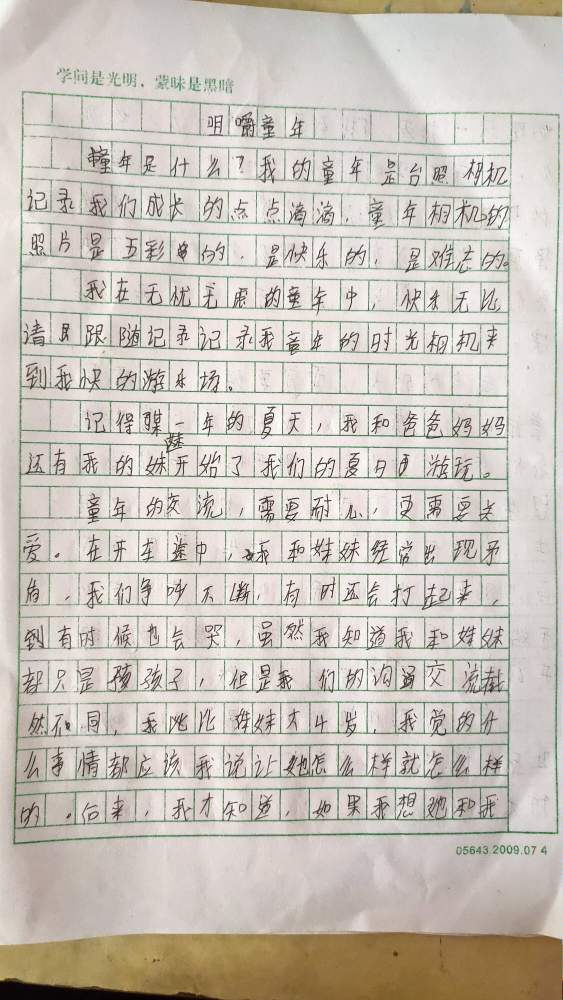 学问是光明，蒙昧是黑暗
明嚼童年
童年是什么？我的童年是台照相机
记录我们成长的点点滴滴，童年相机的
照片是五彩的，是快乐的，是难忘的。
我在无忧无虑的童年中，快乐无比
请跟随记录记录我童年的时光相机来
到我快的游乐场。
记得某一年的夏天，我和爸爸妈妈
还有我的妹妹开始了我们的夏日游玩。
童年的交流，需要耐心，更需要关
爱。在开车途中，我和妹妹经常出现矛
盾，我们争吵不断，有时还会打起来，
到有时候也会哭，虽然我知道我和妹妹
都只是孩孩子，但是我们的沟通交流截
然不同，我比比妹妹大4岁，我觉的什
么事情都应该我说让她怎么样就怎么样
的。后来，我才知道，如果我想她和我
05643.2009.07 4